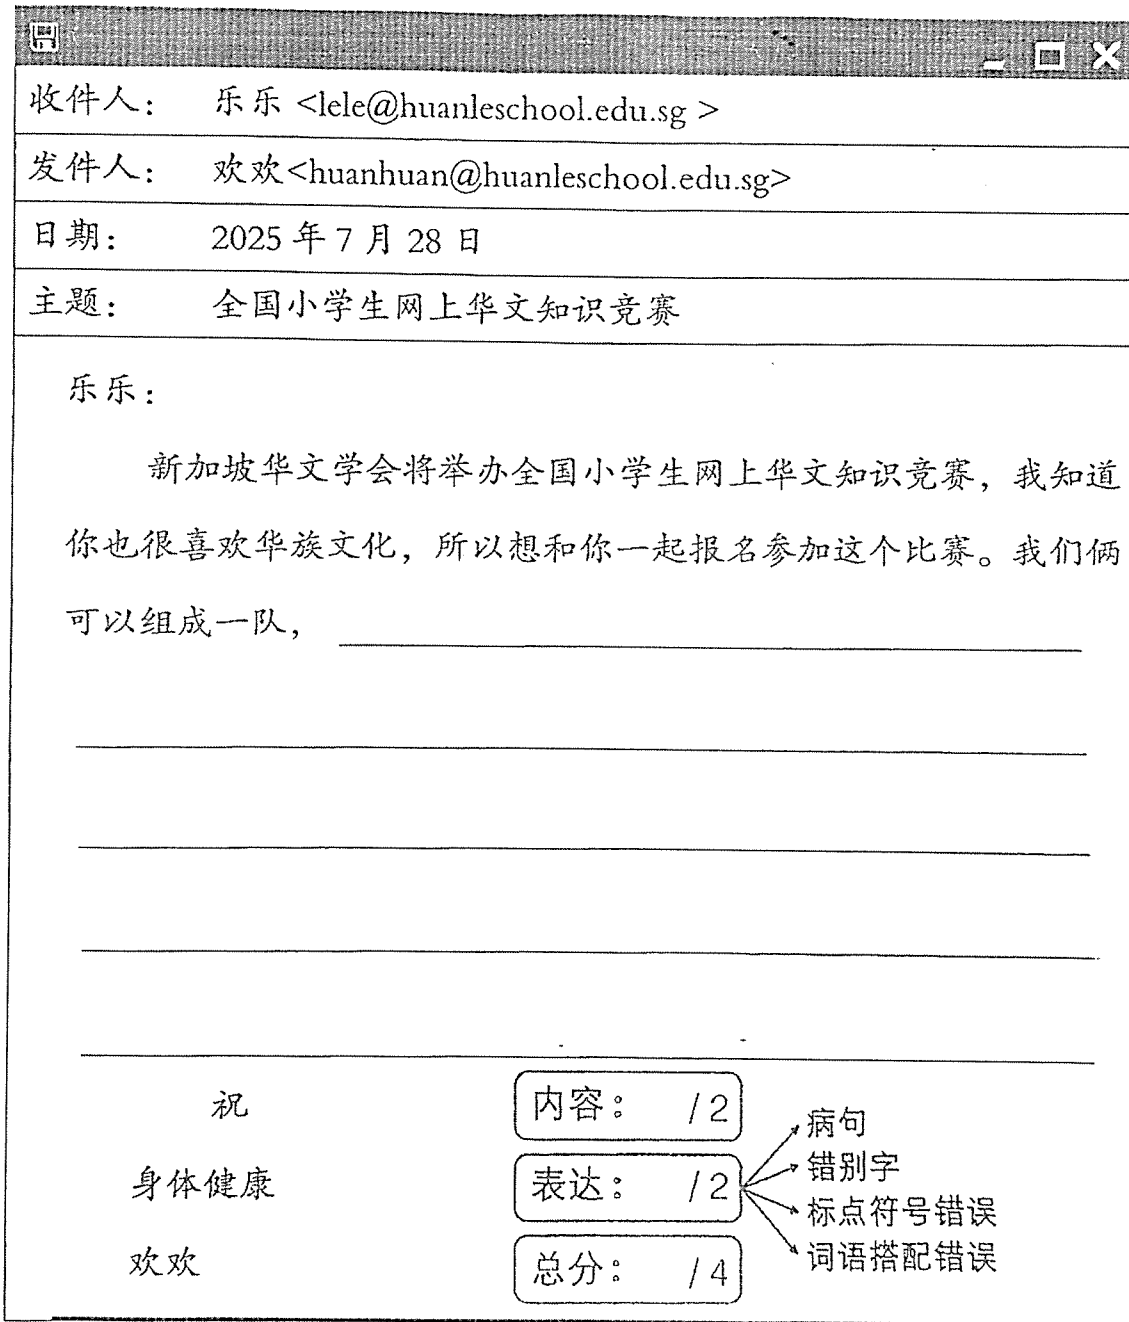 收件人： 乐乐 <lele@huanleschool.edu.sg >
发件人： 欢欢<huanhuan@huanleschool.edu.sg>
日期： 2025 年 7 月 28 日
主题： 全国小学生网上华文知识竞赛
乐乐：
新加坡华文学会将举办全国小学生网上华文知识竞赛，我知道
你也很喜欢华族文化，所以想和你一起报名参加这个比赛。我们俩
可以组成一队，
祝
身体健康
欢欢
内容： /2
表达： /2
总分： /4
病句
错别字
标点符号错误
词语搭配错误